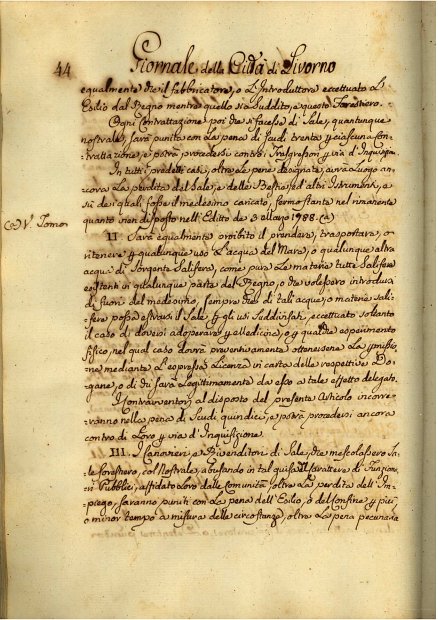 44 Giornale della Città di Livorno
egualmente che il fabbricatore, o L'Introduttore eccettuato L'
Esilio dal Regno mentre quello sia Suddito, e questo Forestiero.
Ogni Contrattazione poi che si facesse di Sale, quantunque
nostrale, sarà punita con La pena di Scudi trenta p ciascuna Con-
trattazione, e potrà procedersi contro i Trasgressori p via d'Inquisizne
In tutti i predetti casi, oltre Le pene designate, avrà Luogo an-
cora La perdita del Sale, e delle Bestie, ed altri Istrumenti, e
sù dei quali fosse il medesimo caricato, ferme stante nel rimanente
quanto vien disposto nell'Editto de 3 Marzo 1788. (a)
(a) V. Tomo
II Sarà egualmente proibito il prendere, trasportare, o
ritenere p qualunque uso L'acqua del Mare, o qualunque altra
acqua di Sorgente Salifera, come pure Le materie tutte Salifere
esistenti in qualunque parte del Regno, o che volessero introdursi
di fuori del medesimo, sempre che di tali acque, o materie Sali-
fere possa estrarsi il Sale p gli usi Suddivisati, eccettuato soltanto
il caso di doversi adoperare p Medicina, o p qualche esperimento
fisico, nel qual caso dovrà preventivamente ottenersene La pmissio-
ne mediante L'espressa Licenza in carta delle respettive Do-
gane, o di chi sarà Legittimamente da esse a tale effetto delegato.
I Contravventori al disposto del presente Articolo incorre-
ranno nella pena di Scudi quindici, e potrà procedersi ancora
contro di Loro p via d'Inquisizione.
III. I Canovieri, e Rivenditori di Sale, che mescolassero Sa-
le forestiero, col Nostrale, abusando in tal guisa del Carattere di Funzion-
ri Pubblici, affidato Loro dalle Comunità, oltre La perdita dell'Im-
piego, saranno puniti con La pena dell'Esilio, o del Confine p più
o minor tempo a misura delle circostanze, oltre La pena pecuniaria